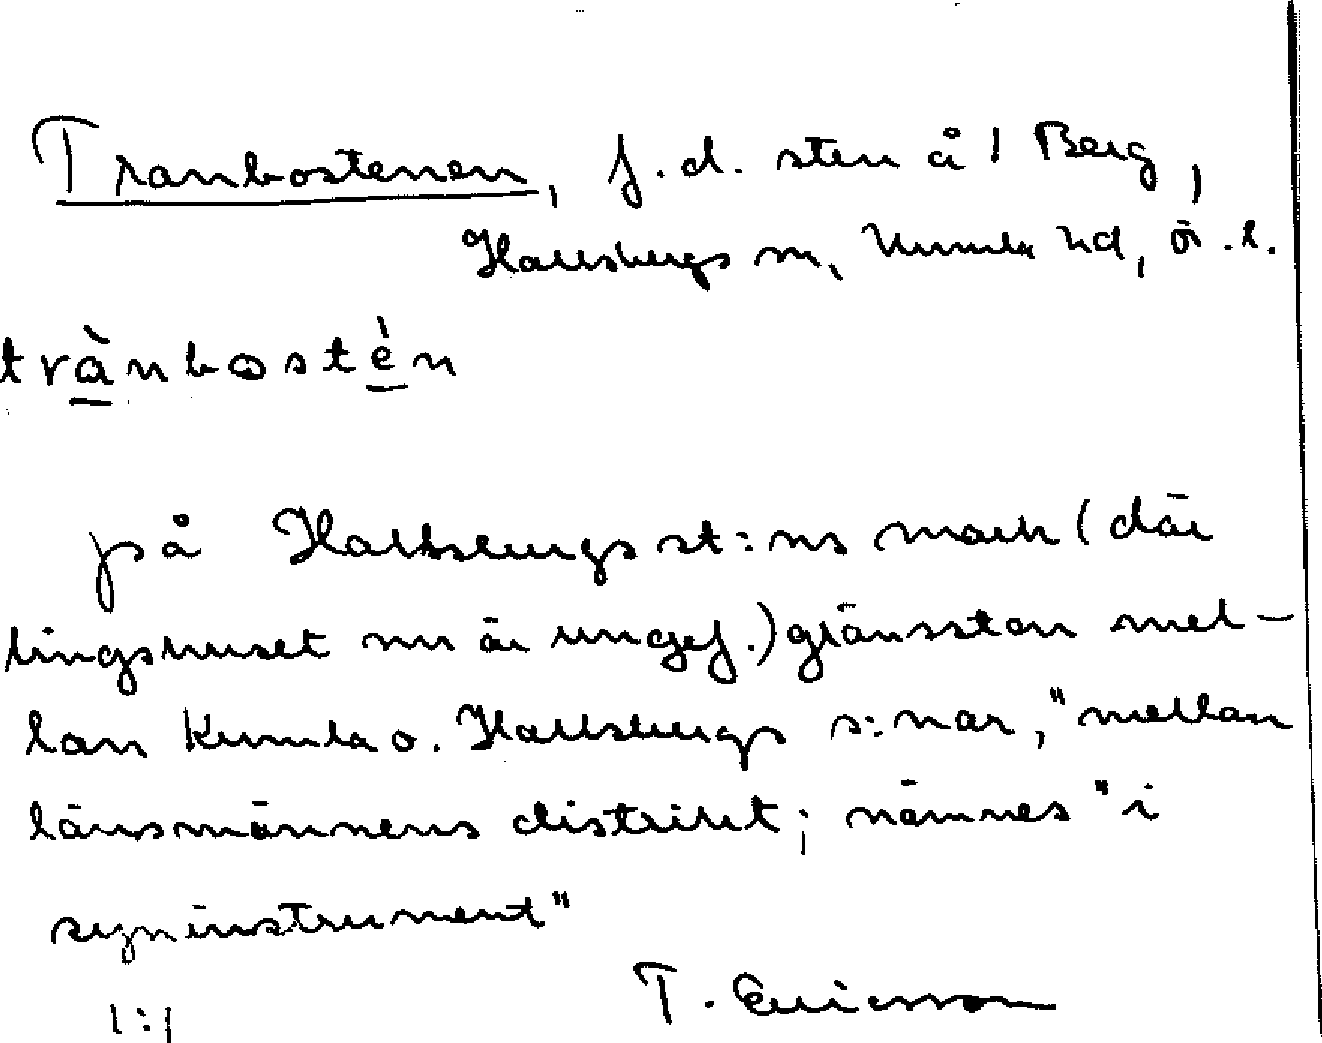 Tranbostenen, f.d. sten å 1 Berg,
Hallsbergs sn, Kumla hd, Ör. l.
trànbostén
på Hallsbergs st:ns mark (där
tingshuset nu är ungef.) gränssten mel-
lan Kumla o. Hallsbergs s:nar, "mellan
länsmännens distrikt; nämnes "i
syninstrument"
1:1 T. Ericsson